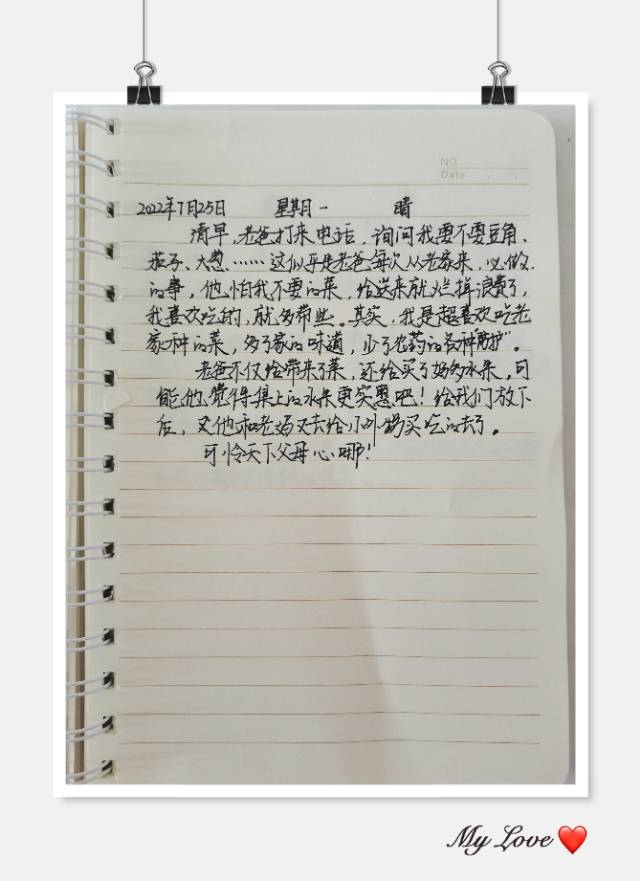 NO
Date
2022年7月25日 星期一 晴
清早,老爸打来电话,询问我要不要豆角、
茄子、大葱……这似乎是老爸每次从老家来,必做
的事,他怕我不要的菜,给送来就烂掉浪费了,
我喜欢吃的,就多带些。其实,我是超喜欢吃老
家种的菜,多了家的味道,少了农药的各种"防护"。
老爸不仅给带来了菜,还给买了好多水果,可
能他觉得集上的水果更实惠吧!给我们放下
后,又他和老妈又去给小外甥买吃的去了。
可怜天下父母心哪!
My Love